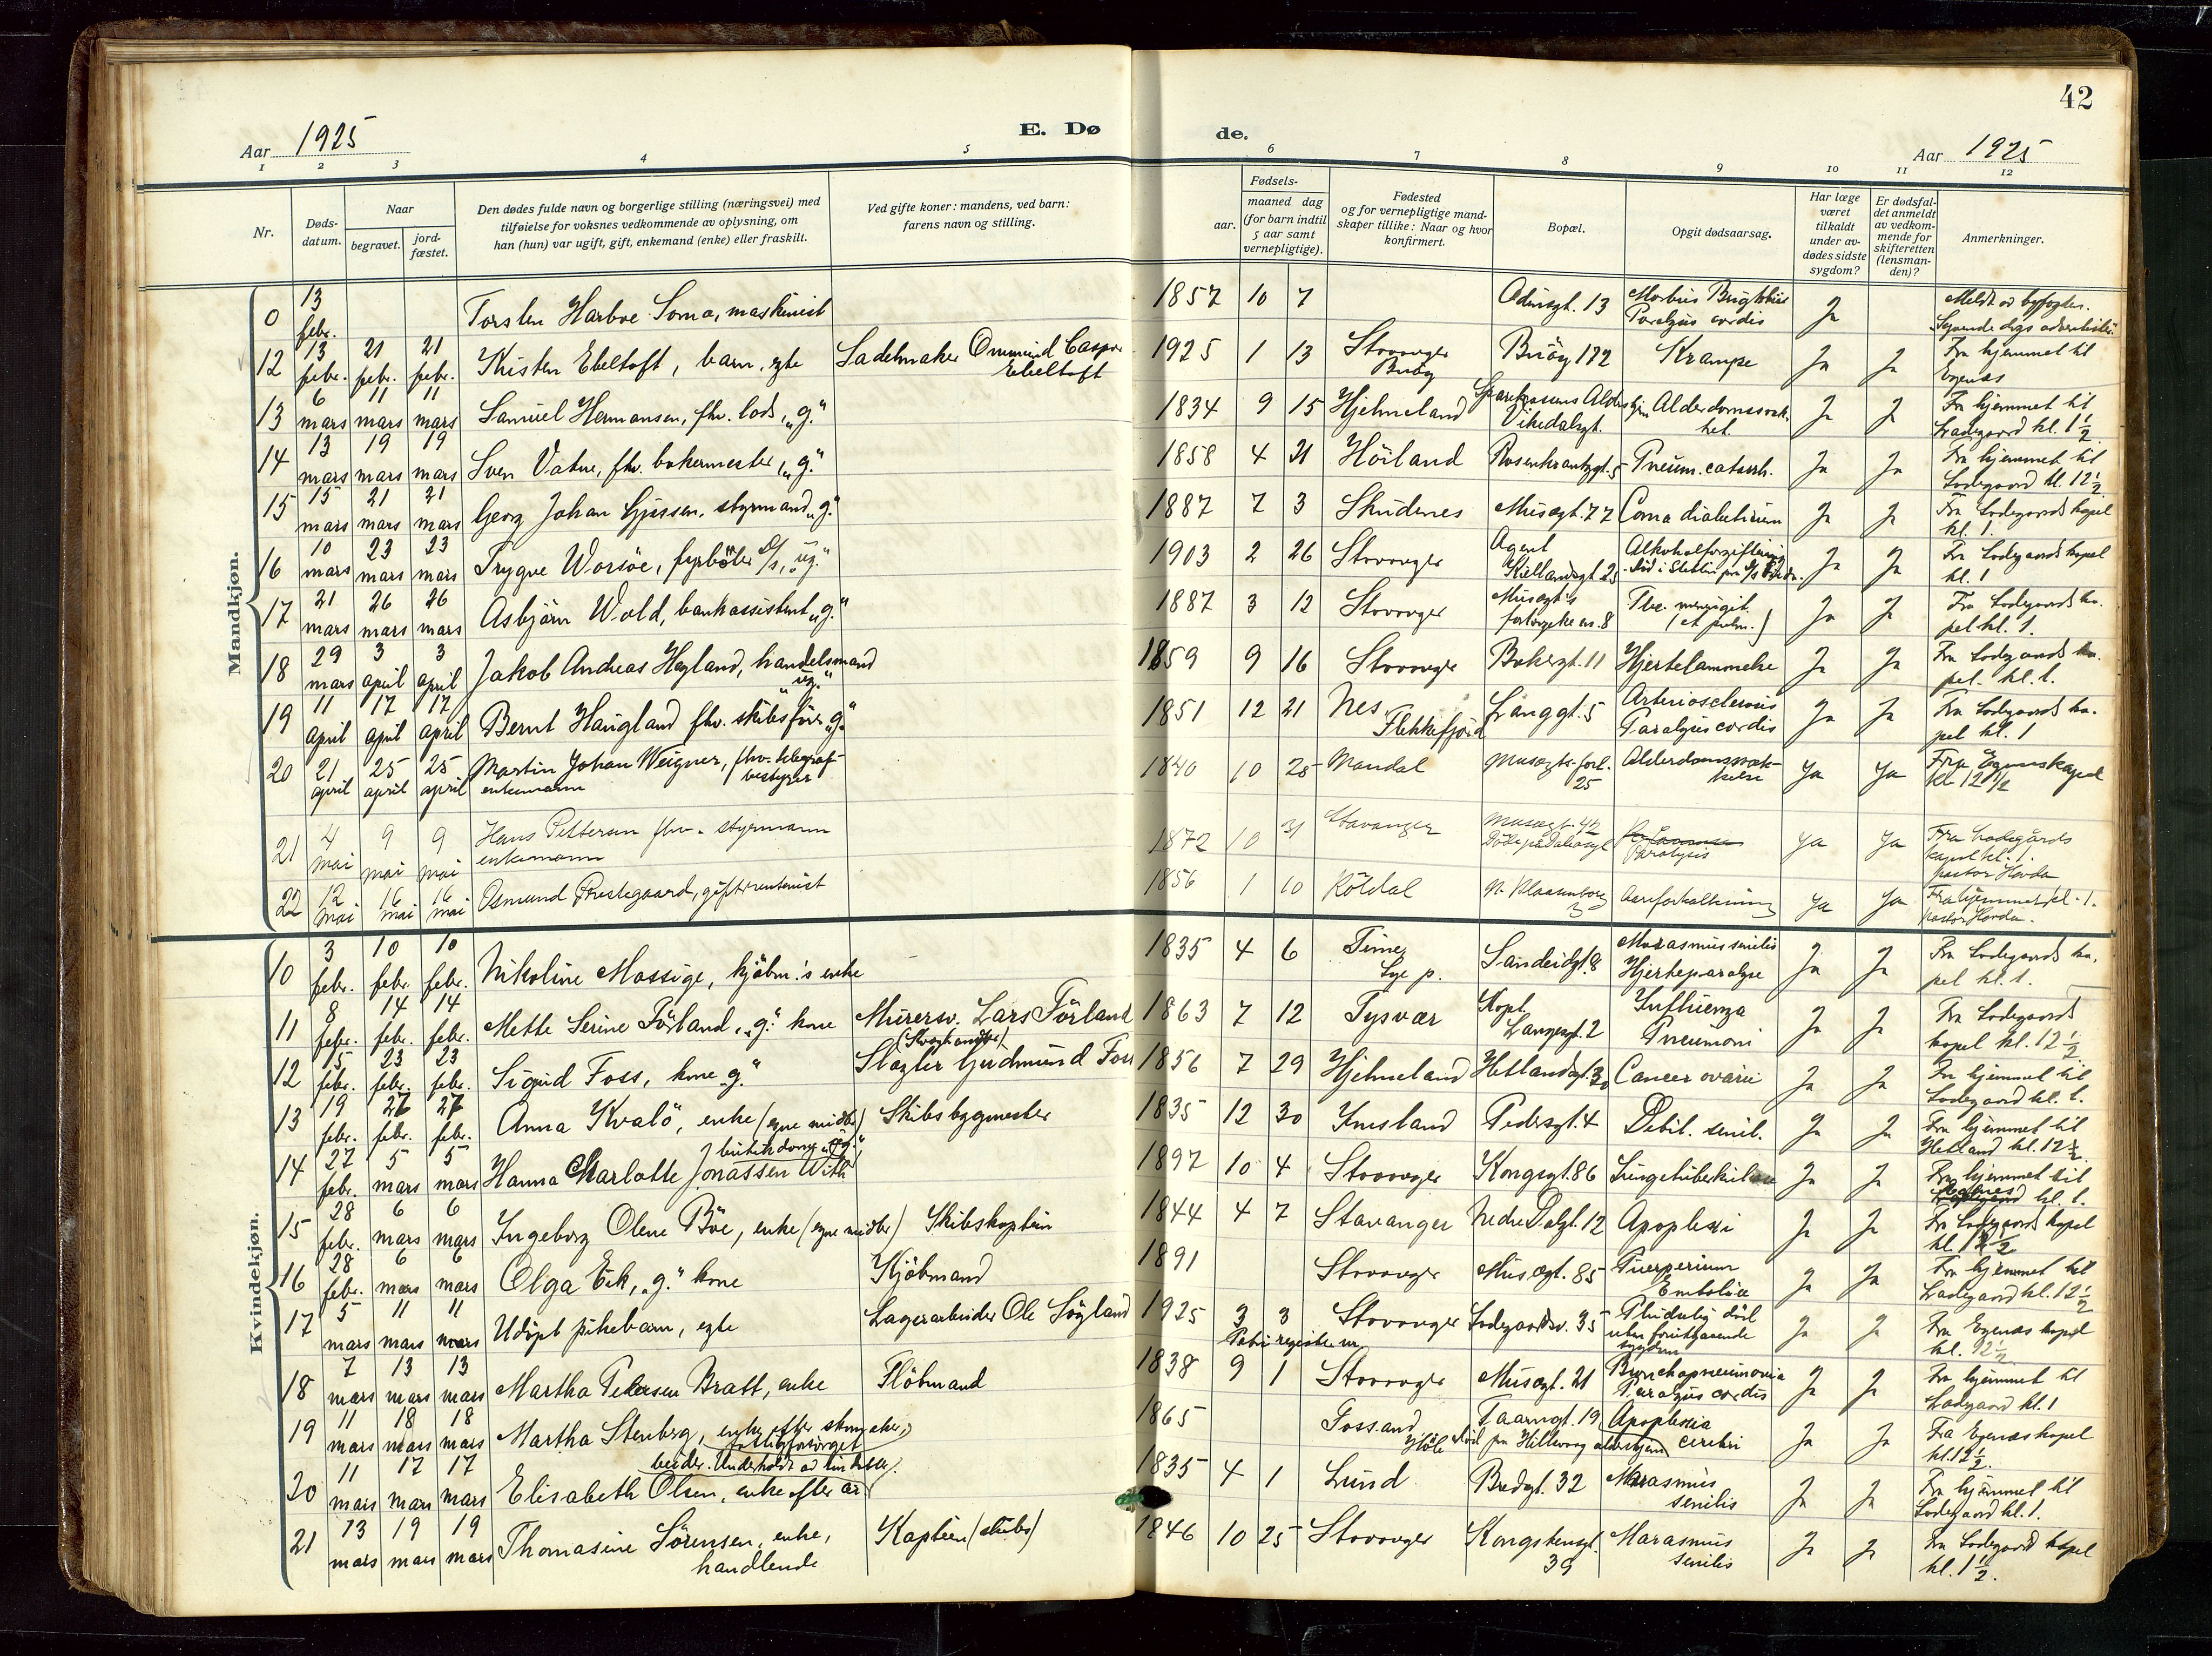 42
Aar 1925
E. Dø
de.
Aar 1925
1 2 3 4 5 6 7 8 9 10 11 12
Nr.
Døds-
datum.
Naar
begravet.
jord-
fæstet.
Den dødes fulde navn og borgerlige stilling (næringsvei) med
tilføielse for voksnes vedkommende av oplysning, om
han (hun) var ugift, gift, enkemand (enke) eller fraskilt.
Ved gifte koner: mandens, ved barn:
farens navn og stilling.
Fødsels-
aar.
maaned dag
(for barn indtil
5 aar samt
vernepligtige).
Fødested
og for vernepligtige mand-
skaper tillike: Naar og hvor
konfirmert.
Bopæl.
Opgit dødsaarsag.
Har læge
været
tilkaldt
under av-
dødes sidste
sygdom?
Er dødsfal-
det anmeldt
av vedkom-
mende for
skifteretten
(lensman-
den)?
Anmerkninger.
Mandkjøn.
0 13 febr. Torsten Harboe Soma, maskinist 1857 10 7 Odinsgt. 13 Morbus Brightii
Paralysis cordis Ja Meldt av byfogden.
Syvende dags adventist
12 13 febr. 21 febr. 21 febr. Kristen Ebeltoft, barn, egte Sadelmaker Ommund Casper
Ebeltoft 1925 1 13 Stavanger
Buøy Buöy 172 Krampe Ja Ja Fra hjemmet til
Egenes
13 6 mars 11 mars 11 mars Samuel Hermansen, fhv. lods, „g." 1834 9 15 Hjelmeland Sparekassens Aldershjem
Vikedalsgt. Alderdomssvak-
het. Ja Ja Fra hjemmet til
Ladegaard kl. 1½
14 13 mars 19 mars 19 mars Sven Vatne, fhv. bakermester, „g." 1858 4 21 Höiland Rosenkrantzgt. 5 Pneum. catarrh. Ja Ja Fra hjemmet til
Ladegaard kl. 12½
15 15 mars 21 mars 21 mars Georg Johan Gjessen, styrmand „g." 1887 7 3 Skudenes Musegt. 77 Coma diabeticum Ja Ja Fra Ladegaards kapel
kl. 1.
16 10 mars 23 mars 23 mars Trygve Worsöe, fyrböter D/s, „ug." 1903 2 26 Stavanger Agent
Kiellandsgt 25 Alkoholforgiftning
död i Stettin Ja Ja Fra Ladegaards kapel
kl. 1
17 21 mars 26 mars 26 mars Asbjörn Wold, bankassistent „g." 1887 3 12 Stavanger Musegt's
forlængelse nr. 8 Tbc. meningit.
(et pulm.) Ja Ja Fra Ladegaards ka-
pel kl. 1.
18 29 mars 3 april 3 april Jakob Andreas Høyland, handelsmand
„ug." 1859 9 16 Stavanger Bakergt. 11 Hjertelammelse Ja Ja Fra Ladegaards ka-
pel. kl. 1.
19 11 april 17 april 17 april Bernt Haugland fhv. skibsförer „g." 1851 12 21 Nes
Flekkefjord Langgt. 5 Arteriosclerosis
Paralysis cordis Ja Ja Fra Ladegaards ka-
pel kl. 1
20 21 april 25 april 25 april Martin Johan Weigner, fhv. telegraf-
bestyrer
enkemann 1840 10 25 Mandal Musegts forl.
25 Alderdomssvak-
kelse Ja Ja Fra Egeneskapel
kl 12½
21 4 mai 9 mai 9 mai Hans Pettersen fhv. styrmann
enkemann 1872 10 31 Stavanger Musegt. 42
Paralysis Ja Ja Fra Ladegårds
kapel kl. 1.
pastor Hovda
22 12 mai 16 mai 16 mai Osmund Prestegaard, gift rentenist 1856 1 10 Röldal N. Blaasenborg
3 Aareforkalkning Ja Ja Fra hjemmet kl. 1.
pastor Hovda.
Kvindekjøn.
10 3 febr. 10 febr. 10 febr. Nikoline Massige, kjöbm.'s enke 1835 4 6 Time,
Lye p. Sandeidgt. 8 Marasmus senilis
Hjerteparalyse Ja Ja Fra Ladegaards ka-
pel kl. 1.
11 8 febr. 14 febr. 14 febr. Mette Serine Förland, „g." kone Murersv. Lars Förland 1863 7 12 Tysvær Kapt.
Langesgt. 2 Influenza
Pneumoni Ja Ja Fra Ladegaards
kapel kl. 12½
12 15 febr. 23 febr. 23 febr. Sigrid Foss, kone „g." Slagter Gudmund Foss 1856 7 29 Hjelmeland Hetlandsgt. 30 Cancer ovarii Ja Ja Fra hjemmet til
Ladegaard kl. 1.
13 19 febr. 27 febr. 27 febr. Anna Kvalö, enke (egne midler) Skibsbygmester 1835 12 30 Finesland Pedersgt. 4 Debil. senil. Ja Ja Fra hjemmet til
Hetland kl. 12½
14 27 febr. 5 mars 5 mars Hanna Charlotte Jonassen With
butikdame „ug." 1897 10 4 Stavanger Kongsgt. 86 Lungetuberkulose Ja Ja Fra hjemmet til
kl. 1.
15 28 febr. 6 mars 6 mars Ingeborg Olene Böe, enke (egne midler) Skibskaptein 1844 4 7 Stavanger Nedre Dalgt. 12 Apoplexi Ja Ja Fra Ladegaards kapel
kl. 12½
16 28 febr. 6 mars 6 mars Olga Eik, „g." kone Kjöbmand 1891 Stavanger Musegt. 85 Puerperium
Embolie Ja Ja Fra hjemmet til
Ladegaard kl. 12½
17 5 mars 11 mars 11 mars Udöpt pikebarn, egte Lagerarbeider Ole Sögland 1925 3 3
Petri register Stavanger Ladegaardsv. 35 Pludselig död
uten forutgaaende
sygdom Ja Ja Fra Egenæs kapel
kl. 12½
18 7 mars 13 mars 13 mars Martha Petersen Bratt, enke Flöbmand 1838 9 1 Stavanger Musegt. 21 Bronchopneumonia
Paralysis cordis Ja Ja Fra hjemmet til
Ladegaard kl. 1
19 11 mars 18 mars 18 mars Martha Stenberg, enke efter skomaker,
fattigforsörget 1865 Fossand
Höle Taarngt. 19, Apoplexia
cerebri
död paa Hillevaag aldershjem Ja Ja Fra Egenæs kapel
kl. 12½.
20 11 mars 17 mars 17 mars Elisabeth Olsen, enke efter ar-
beider. Underholdt av 1835 4 1 Lund Bredgt. 32 Marasmus
senilis Ja Ja Fra hjemmet til
Ladegaard kl. 1.
21 13 mars 19 mars 19 mars Thomasine Sörensen, enke,
handlende Kaptein (skibs) 1846 10 25 Stavanger Kongstensgt.
39 Marasmus
senilis Ja Ja Fra Ladegaard kapel
kl. 1½.